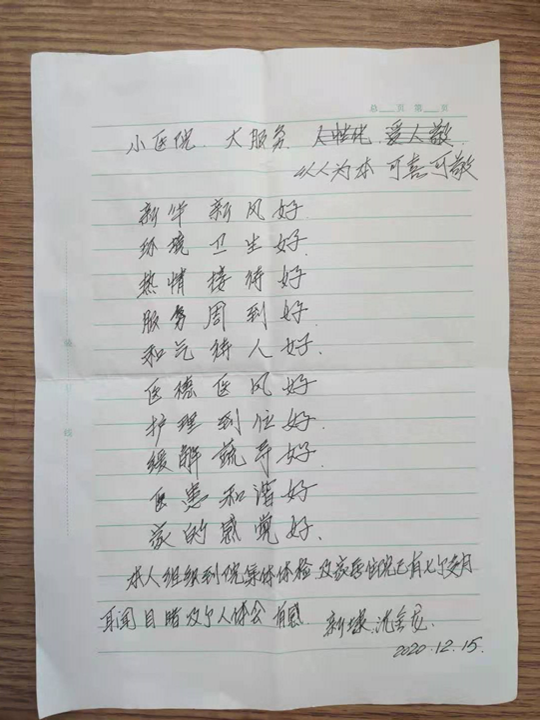 总 页 第 页
小医院. 大服务. 人性化. 爱人敬.
以人为本 可喜可敬
新华新风好.
环境卫生好.
热情接待好
服务周到好.
和气待人好.
医德医风好
护理到位好.
缓解疏导好.
医患和谐好
家的感觉好.
本人组织到院集体体检及家属住院已有七个多月
耳闻目睹及个人体会有感. 新埭. 沈
2020.12.15.